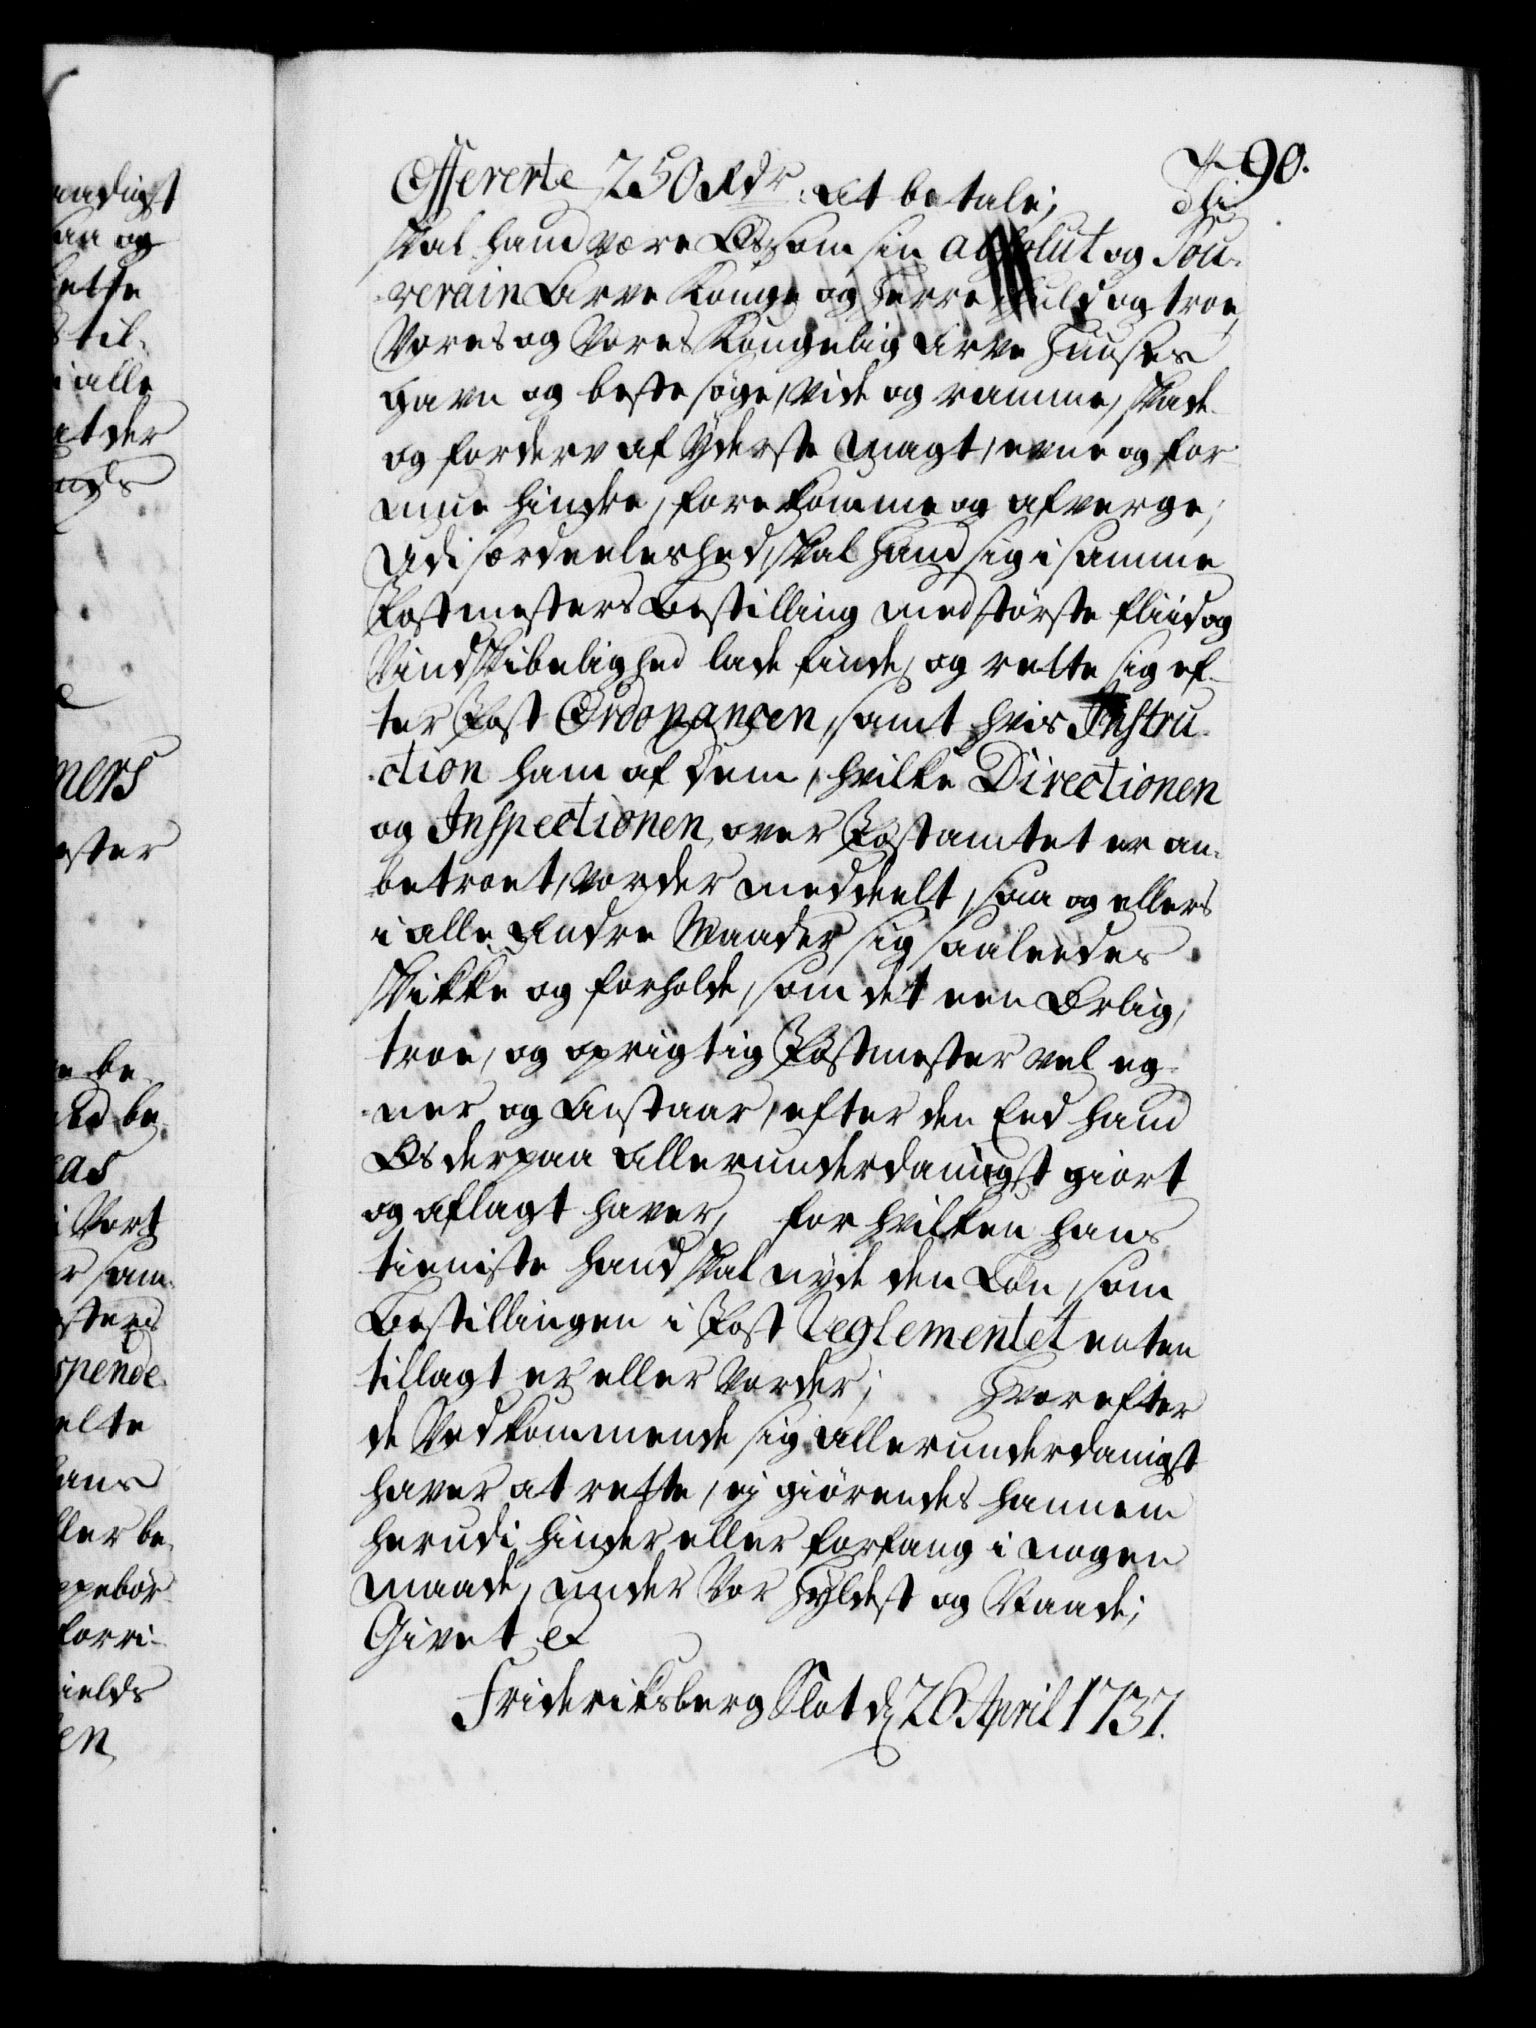 90.
Offererte 250 Rdr. at betale; Thi
skal hand være Os som sin absolut og Sou-
verain Arve Konge og Herre huld og troe,
Vores og Vores Kongelig Arve Huuses
gavn og beste søge, vide og ramme, skade
og forderv af Yderste magt, evne og for-
mue hindre, forekomme og afverge;
Udi særdeeleshed, skal hand sig i samme
Postmesters Bestilling med største fliid og
Vindskibelighed lade finde, og rette sig ef-
ter Post Ordonancen, samt hvis Instru-
ction ham af dem, hvilke Directionen
og Inspectionen over Postamtet er an-
betroet, vorder meddeelt, saa og ellers
i alle Andre Maader sig saaleedes
skikke og forholde, som det een Ærlig,
troe, og oprigtig Postmester vel eg-
ner og Anstaar, efter den Eed hand
Os derpaa Allerunderdanigst giort
og aflagt haver, for hvilken hans
tieniste hand skal nyde den Løn, som
Bestillingen i Post Reglementet enten
tillagt er eller Vorder; Hvorefter
de Vedkommende sig allerunderdanigst
haver at rette, ej giørendes hannem
herudi hinder eller forfang i nogen
maade, under Vor Hyldest og Naade;
Givet &
Frideriksberg Slot d. 26 April 1737.